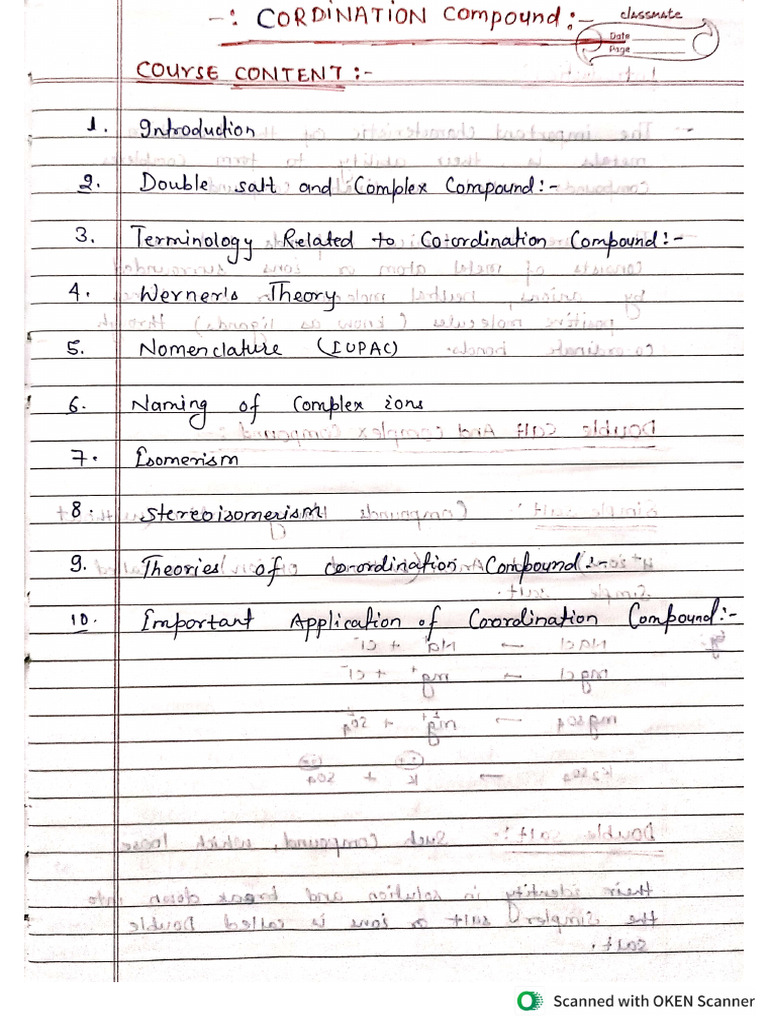 -: CORDINATION Compound:-
classmate
Date
Page
COURSE CONTENT:-
1. Introduction
2. Double salt and Complex Compound:-
3. Terminology Related to Co-ordination Compound:-
4. Werner's Theory
5. Nomenclature (IUPAC)
6. Naming of Complex ions
7. Isomerism
8. Stereoisomerism
9. Theories of co-ordination Compound:-
10. Important Application of Coordination Compound:-
Scanned with OKEN Scanner